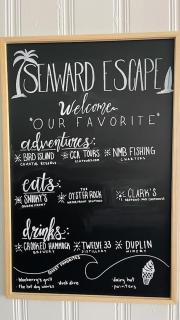 SEAWARD ESCAPE
Welcome
"OUR FAVORITE"
adventures:
BIRD ISLAND CCA TOURS NMB FISHING
CHARTERS
eats:
SNOOKY'S THE OYSTER ROCK CLARK'S
WATERFRONT SEAFOOD SEAFOOD AND CHOPHOUSE
drinks:
CROOKED HAMMOCK TWELVE 33 DUPLIN
BREWERY DISTILLERY WINERY
GUEST FAVORITES
blueberry's grill duck dive dairy hut
the hot dog works painters